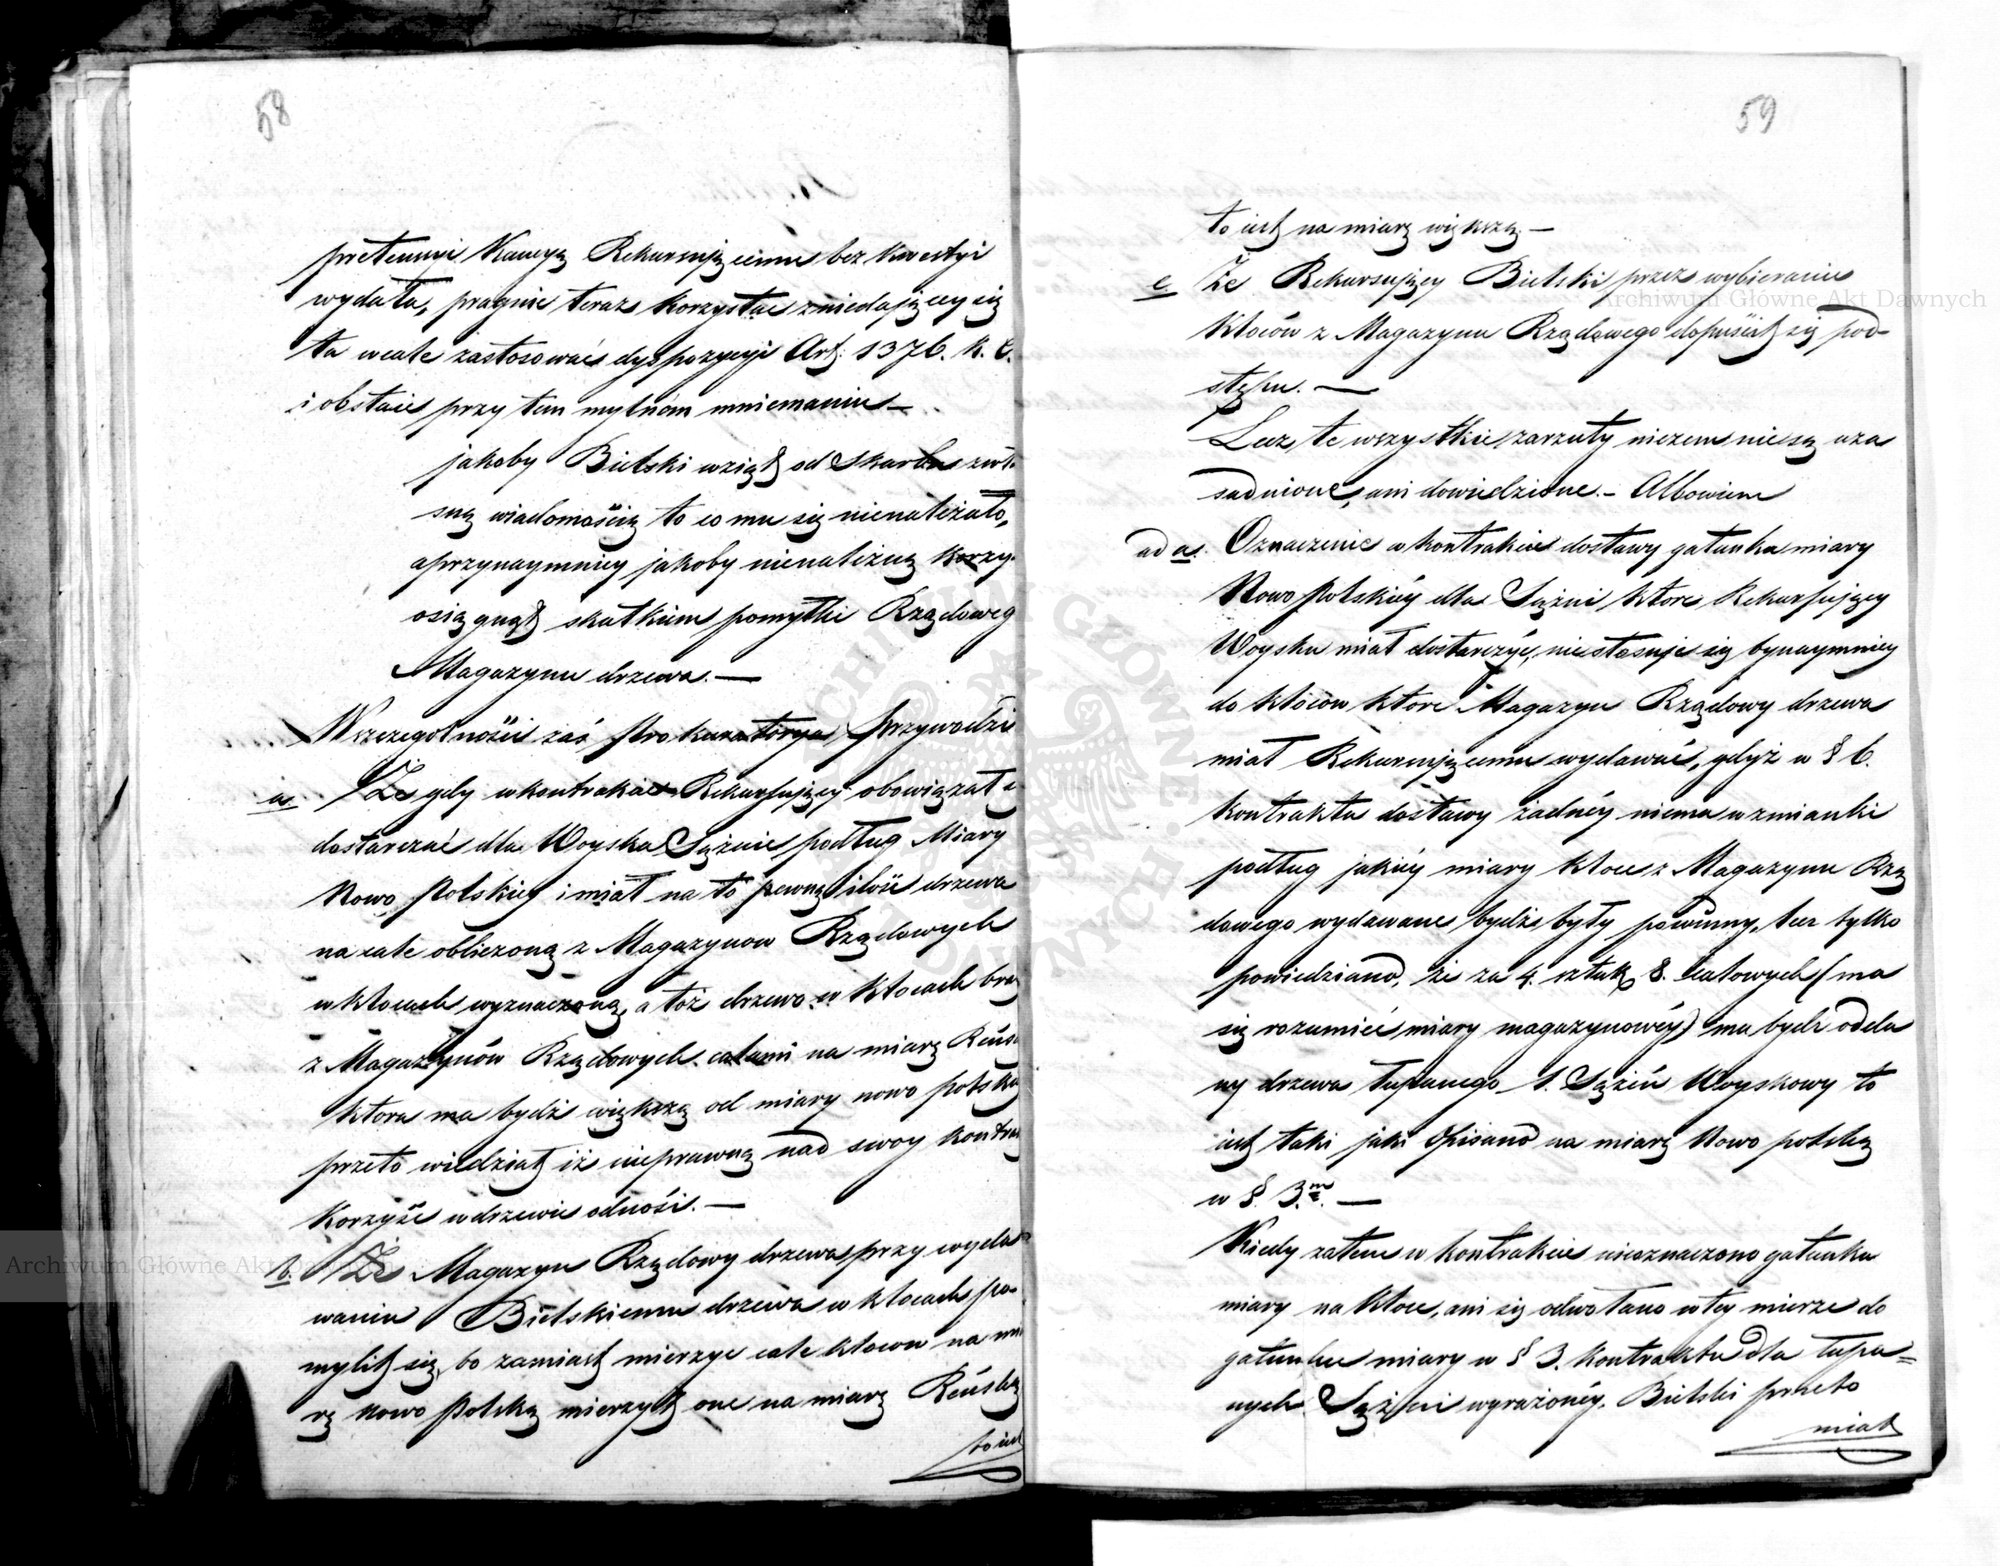 58
pretensyi Kaucyą Rekursującemu bez kwestyi
wydała, pragnie teraz korzystać z niedającey się
tu wcale zastosować dyspozycyi Art: 1376. K. C.
i obstaie przy tem mylnem mniemaniu —
jakoby Bielski wziął od Skarbu z wła
sną wiadomością to co mu się nienależało,
a przynaymniey jakoby nienależną korzyść
osiągnął skutkiem pomyłki Rządoweg
Magazynu drzewa. —
W szczególności zaś Prokuratorya przywodzi
a. Że gdy w kontrakcie Rekursujący obowiązał się
dostarczać dla Woyska Sążnie podług Miary
Nowo Polskiey i miał na to pewną ilość drzewa
na cale obliczoną z Magazynów Rządowych
w kłocach wyznaczoną, a toż drzewo w kłocach brał
z Magazynów Rządowych calami na miarę Reńską
która ma bydź większą od miary nowo polskiey
przeto wiedział iż nieprawną nad swoy kontrakt
korzyść w drzewie odnosi. —
b. Że Magazyn Rządowy drzewa przy wyda
waniu Bielskiemu drzewa w kłocach po-
mylił się, bo zamiast mierzyć cale kłocow na mia
rę nowo Polską mierzył one na miarę Reńską
to iest
59
to iest na miarę większą. —
c Że Rekursujący Bielski przez wybieranie
kloców z Magazynu Rządowego dopuścił się pod-
stępu. —
Lecz te wszystkie zarzuty niczem nie są uza
sadnione, ani dowiedzione. – Albowiem
ad a. Oznaczenie w kontrakcie dostawy gatunku miary
Nowo Polskiéy dla Sążni które Rekursujący
Woysku miał dostarczyć, niestosuje się bynaymniey
do kłóców które Magazyn Rządowy drzewa
miał Rekursującemu wydawać, gdyż w § 6.
kontraktu dostawy żadnéy niema wzmianki
podług jakiéy miary kloce z Magazynu Rzą
dowego wydawane bydź były powinny, lecz tylko
powiedziano, że za 4. sztuk 8. calowych (ma
się rozumieć miary magazynowéy) ma bydź odda
ny drzewa łupanego 1. Sążeń Woyskowy to
iest taki jaki Opisano na miarę Nowo polską
w § 3.m —
Kiedy zatem w kontrakcie nieoznaczono gatunku
miary na kloce, ani się odwołano w tey mierze do
gatunku miary w § 3. kontraktu dla łupa=
nych Sążni wyrażonéy, Bielski przeto
miał
Archiwum Główne Akt Dawnych
Archiwum Główne Akt Dawnych
ARCHIWUM GŁÓWNE AKT DAWNYCH